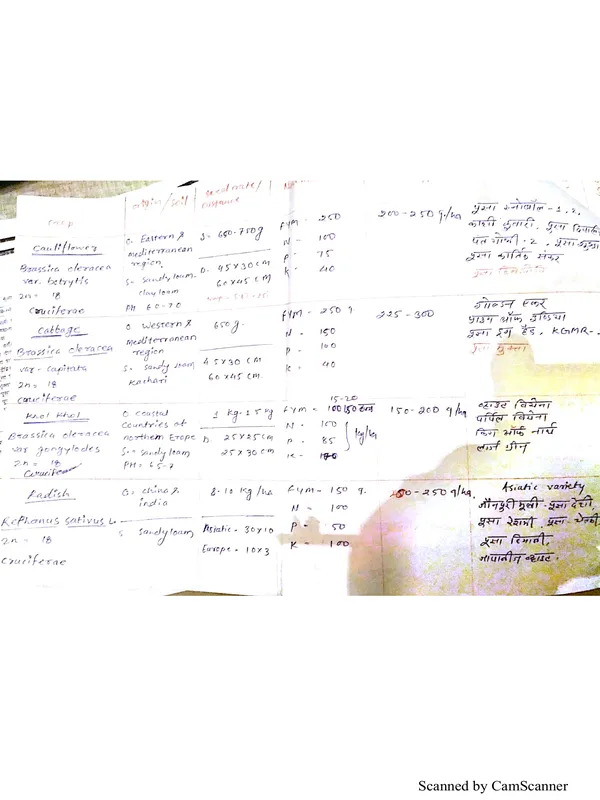 Crop
origin/soil
seed rate/
distance
Cauliflower
Brassica oleracea
var. botrytis
2n = 18
cruciferae
O. Eastern &
mediterranean
region
S- sandy loam,
clay loam
PH 60-70
S- 650-750g
D. 45x30 cm
60x45 cm
FYM - 250
N - 100
P - 75
K - 40
200-250 q/ha
पूसा स्नोबॉल - 1, 2,
पूसा कार्तिक संकर
Cabbage
Brassica oleracea
var - capitata
2n = 18
cruciferae
O Western &
Mediterranean
region
S- sandy loam
650 g.
45x30 cm
60x45 cm.
FYM - 250 q
N - 150
P - 100
K - 40
225-300
गोल्डन एकर
प्राइड ऑफ इण्डिया
पूसा ड्रम हैड, KGMR-
पूसा मुक्ता
Khol Khol
Brassica oleracea
var gongylodes
2n = 18
Cruciferae
O coastal
countries of
northern Erope
S- sandy loam
PH = 65-7
1 kg-1.5 kg
D. 25x25 cm
25x30 cm
15-20
FYM -
N - 100
P - 85
K -
kg/ha
150-200 q/ha
व्हाइट वियेना
पर्पिल वियेना
किंग ऑफ नार्थ
लार्ज ग्रीन
Radish
Raphanus sativus L.
2n = 18
Cruciferae
O = china &
india
S sandy loam
8-10 kg/ha
Asiatic - 30x10
Europe - 10x3
FYM - 150 q.
N = 100
P - 50
K - 100
-250 q/ha,
Asiatic variety
जौनपुरी मूली, पूसा देशी,
पूसा रेशमी, पूसा चेतकी
पूसा हिमानी,
जापानीज व्हाइट.
Scanned by CamScanner